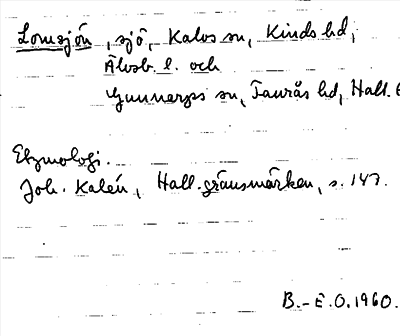 Lomsjön, sjö, Kalvs sn, Kinds hd,
Älvsb. l. och
Gunnarps sn, Faurås hd, Hall.
Etymologi.
Joh. Kalén, Hall. gränsmärken, s. 147.
B.-E.O. 1960.